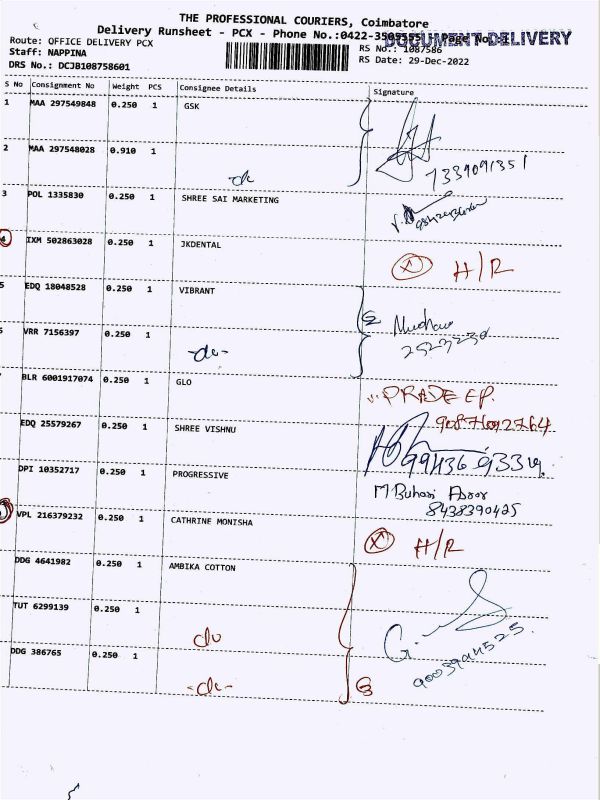 THE PROFESSIONAL COURIERS, Coimbatore
Delivery Runsheet - PCX - Phone No.:0422-3505555 Page No.:1
DOCUMENT DELIVERY
Route: OFFICE DELIVERY PCX RS No.: 1087586
Staff: NAPPINA RS Date: 29-Dec-2022
DRS No.: DCJB108758601
S No Consignment No Weight PCS Consignee Details Signature
1 MAA 297549848 0.250 1 GSK
2 MAA 297548028 0.910 1 -do
7339091351
3 POL 1335830 0.250 1 SHREE SAI MARKETING
4 IXM 502863028 0.250 1 JKDENTAL
X H/R
5 EDQ 18048528 0.250 1 VIBRANT
6 VRR 7156397 0.250 1 -do-
2523230
BLR 6001917074 0.250 1 GLO PRADEEP.
9087692764
EDQ 25579267 0.250 1 SHREE VISHNU
DPI 10352717 0.250 1 PROGRESSIVE M Buhari
8438390425
VPL 216379232 0.250 1 CATHRINE MONISHA X H/R
DDG 4641982 0.250 1 AMBIKA COTTON
TUT 6299139 0.250 1 do
G.
DDG 386765 0.250 1 -do- 3